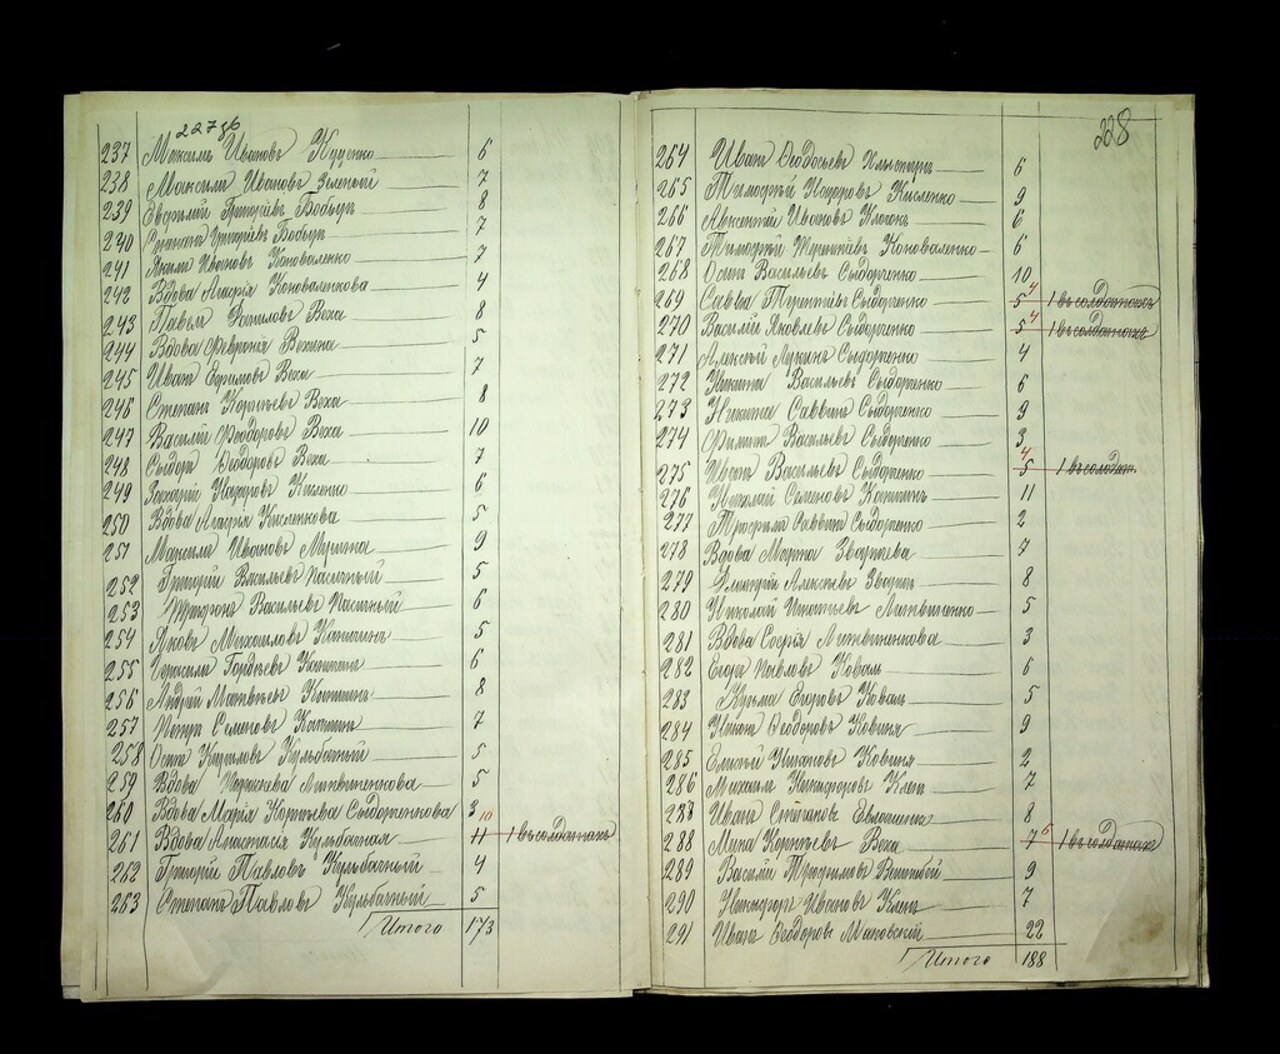 227 об
237 Максимъ Ивановъ Куценко 6
238 Максимъ Ивановъ Зеленый 7
239 Евфимій Григорьевъ Бобырь 8
240 Григорьевъ Бобырь 7
241 Якимъ Ивановъ Коноваленко 7
242 Вдова Агафія Коноваленкова 4
243 Павелъ Даниловъ Веха 8
244 Вдова Февронія Вехина 5
245 Иванъ Ефимовъ Веха 7
246 Степанъ Корнѣевъ Веха 8
247 Василій Феодоровъ Веха 10
248 Сыдоръ Феодоровъ Веха 7
249 Захарій Назаровъ Кисленко 6
250 Вдова Агафія Кисленкова 5
251 Максимъ Ивановъ 9
252 Григорій Васильевъ Пасичный 5
253 Трифонъ Васильевъ Пасичный 6
254 Яковъ Михаиловъ Капшинъ 5
255 Герасимъ Гордѣевъ Капшинъ 6
256 Андрей Матвѣевъ Капшинъ 8
257 Петръ Семеновъ Капшинъ 7
258 Осипъ Кириловъ Кульбачный 5
259 Вдова Литвиненкова 5
260 Вдова Марія Корнѣева Сыдорченкова 3
261 Вдова Анастасія Кульбачная 11 10 1 въ солдатахъ
262 Григорій Павловъ Кульбачный 4
263 Степанъ Павловъ Кульбачный 5
Итого 173
228
264 Иванъ Феодосьевъ 6
265 Тимофѣй Назаровъ Кисленко 9
266 Авксентій Ивановъ 6
267 Тимофѣй Терентіевъ Коноваленко 6
268 Осипъ Васильевъ Сыдорченко 10
269 Савва Терентіевъ Сыдорченко 5 4 1 въ солдатахъ
270 Василій Яковлевъ Сыдорченко 5 4 1 въ солдатахъ
271 Алексѣй Лукинъ Сыдорченко 4
272 Никита Васильевъ Сыдорченко 6
273 Никита Саввинъ Сыдорченко 9
274 Филипъ Васильевъ Сыдорченко 3
275 Иванъ Васильевъ Сыдорченко 5 4 1 въ солдат.
276 Николай Семеновъ Капшинъ 11
277 Трофимъ Саввинъ Сыдорченко 2
278 Вдова Марѳа Зварычева 7
279 Дмитрій Алексѣевъ Зварычъ 8
280 Николай Игнатьевъ Литвиненко 5
281 Вдова Софія Литвиненкова 3
282 Егоръ Павловъ Коваль 6
283 Кузьма Егоровъ Коваль 5
284 Никонъ Феодоровъ Ковиня 9
285 Елисѣй Никоновъ Ковиня 2
286 Михаилъ Никифоровъ Клепъ 7
287 Иванъ Степановъ 8
288 Мина Корнѣевъ Веха 7 6 1 въ солдатахъ
289 Василій Трофимовъ 9
290 Никифоръ Ивановъ Клепъ 7
291 Иванъ Феодоровъ Маковскій 22
Итого 188